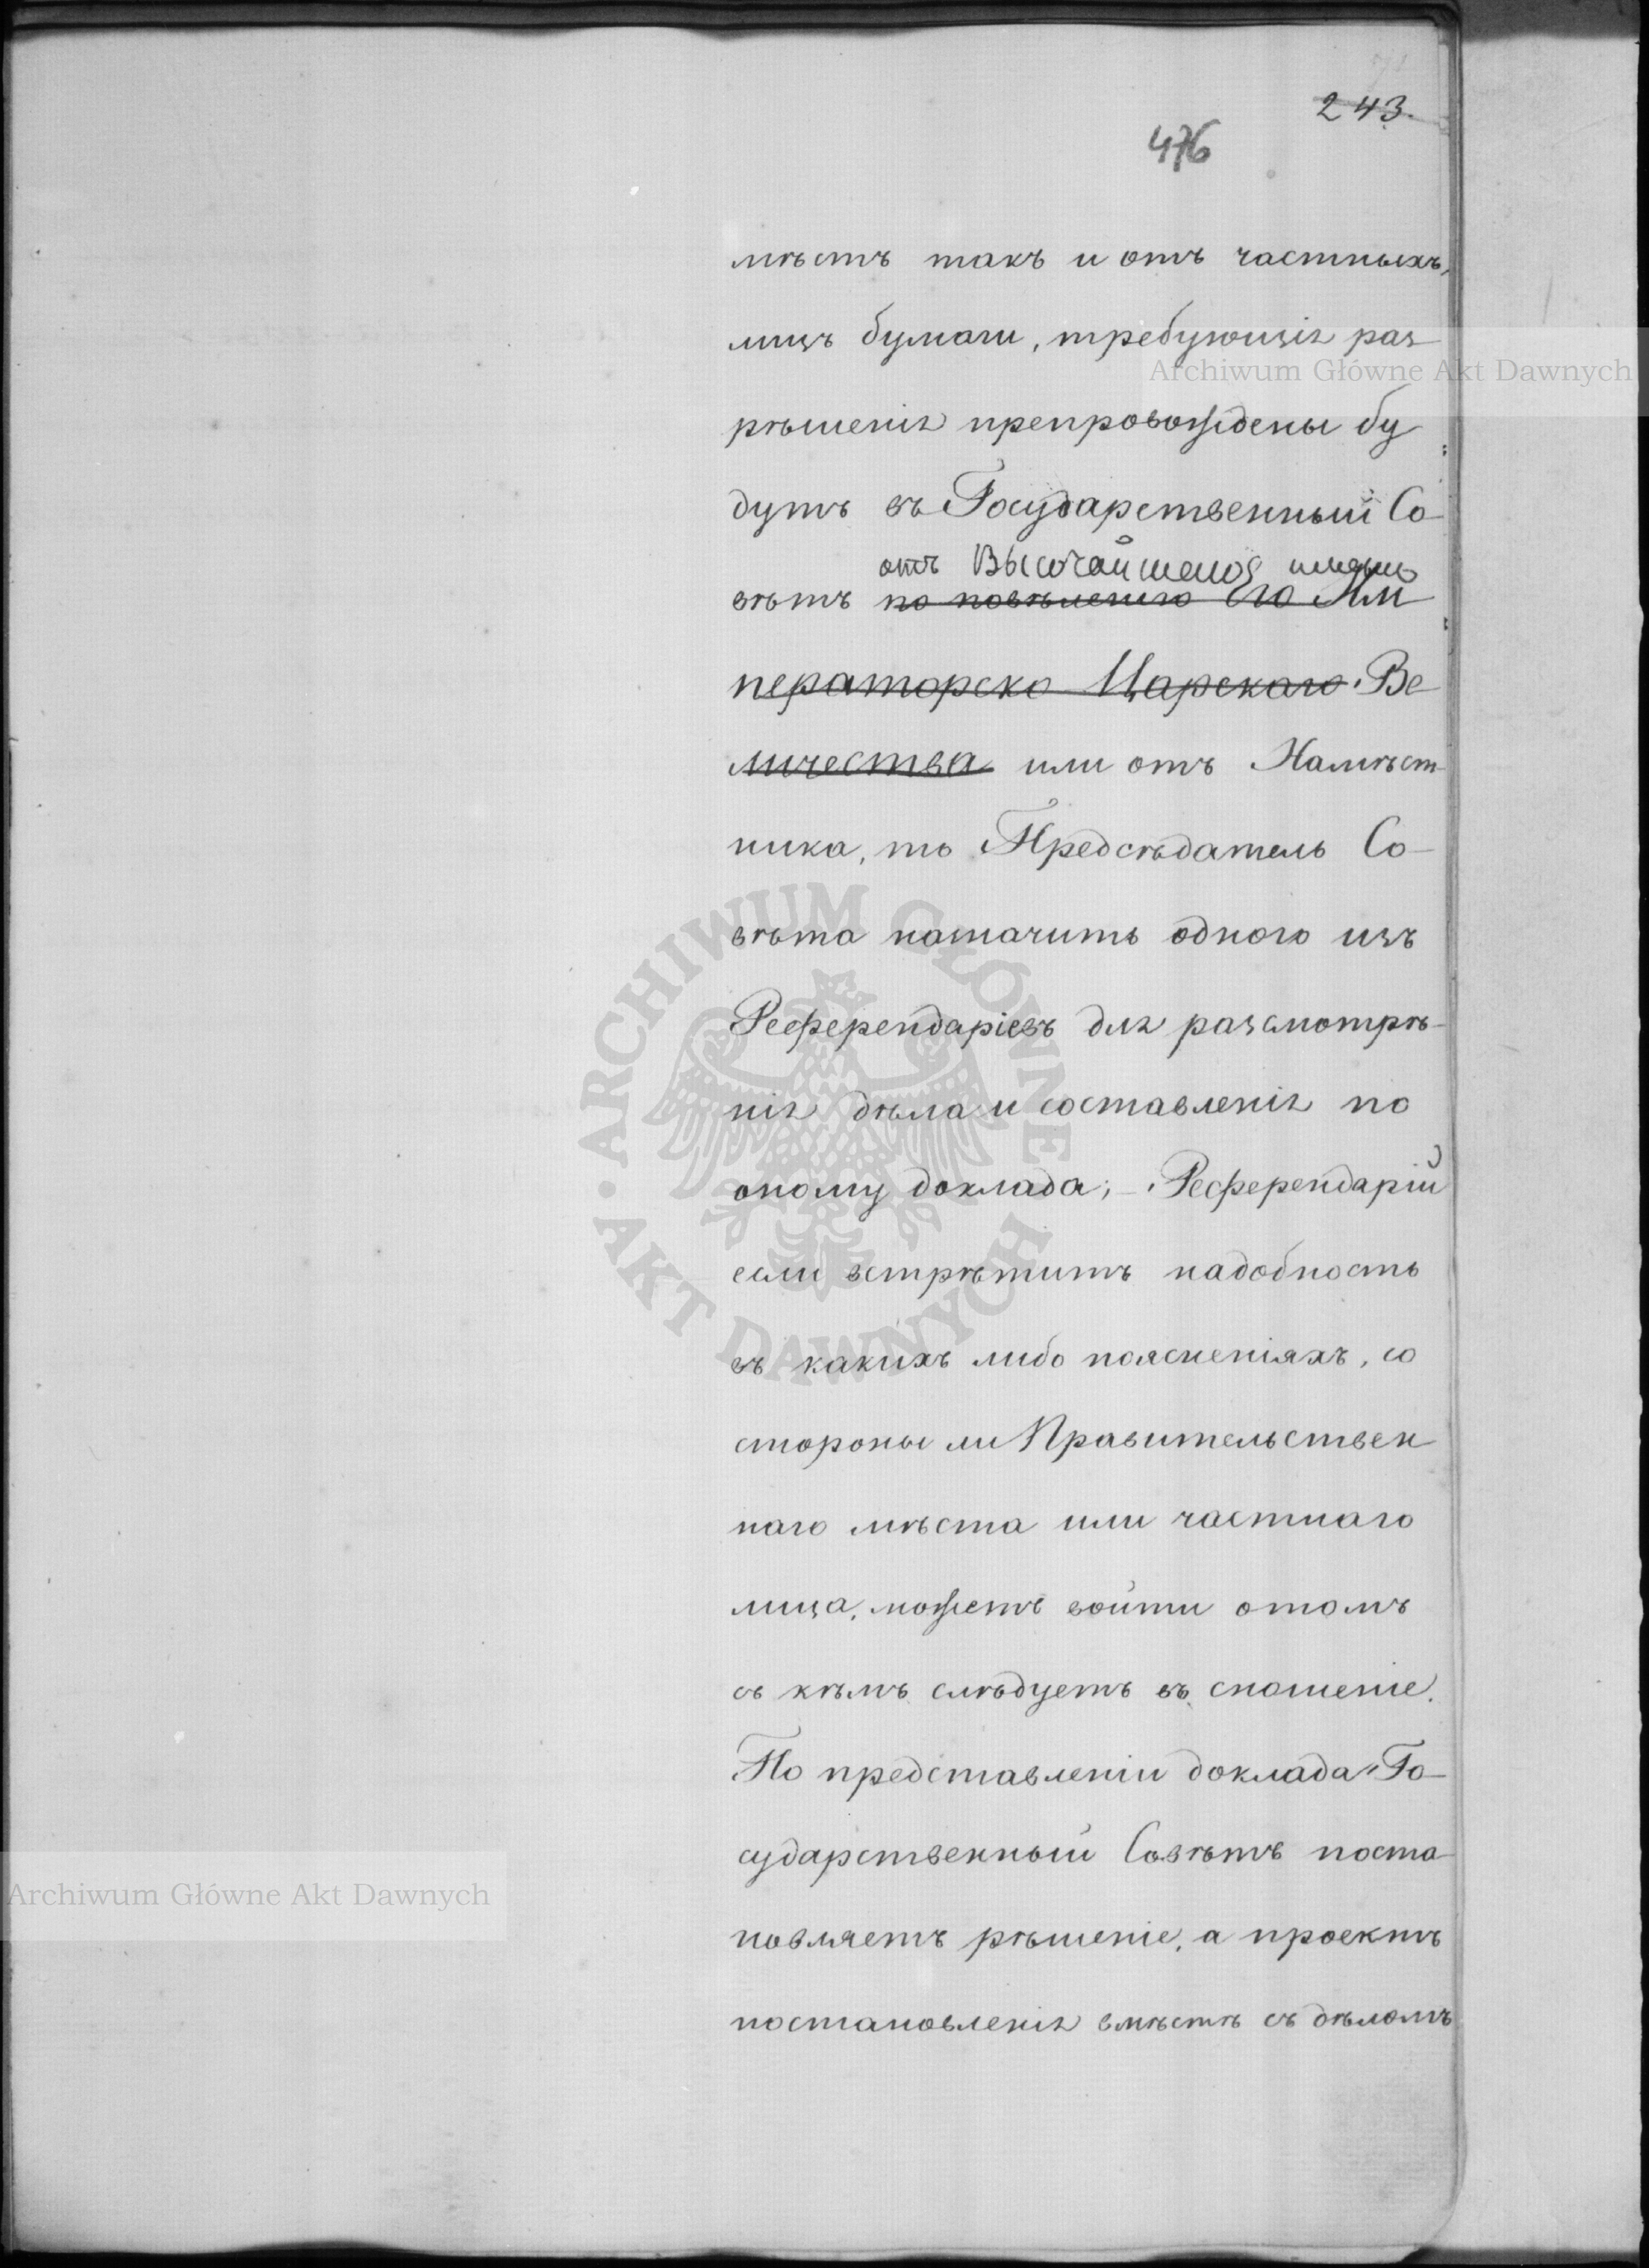 243.
476
мѣстъ такъ и отъ частныхъ
лицъ бумаги, требующія раз
рѣшенія препровождены бу
дутъ въ Государственный Со
отъ Высочайшаго имени
вѣтъ по повѣленію Его Им
ператорско Царскаго Ве
личества или отъ Намѣст
ника, то Предсѣдатель Со
вѣта назначитъ одного изъ
Референдаріевъ для разсмотрѣ
нія дѣла и составленія по
оному доклада; – Референдарій
если встрѣтитъ надобность
въ какихъ либо поясненіяхъ, со
стороны ли Правительствен
наго мѣста или частнаго
лица, можетъ войти отомъ
съ кѣмъ слѣдуетъ въ сношеніе.
По представленіи доклада Го
сударственный Совѣтъ поста
новляетъ рѣшеніе, а проектъ
постановленія вмѣстѣ съ дѣломъ
Archiwum Główne Akt Dawnych
ARCHIWUM GŁÓWNE AKT DAWNYCH
Archiwum Główne Akt Dawnych